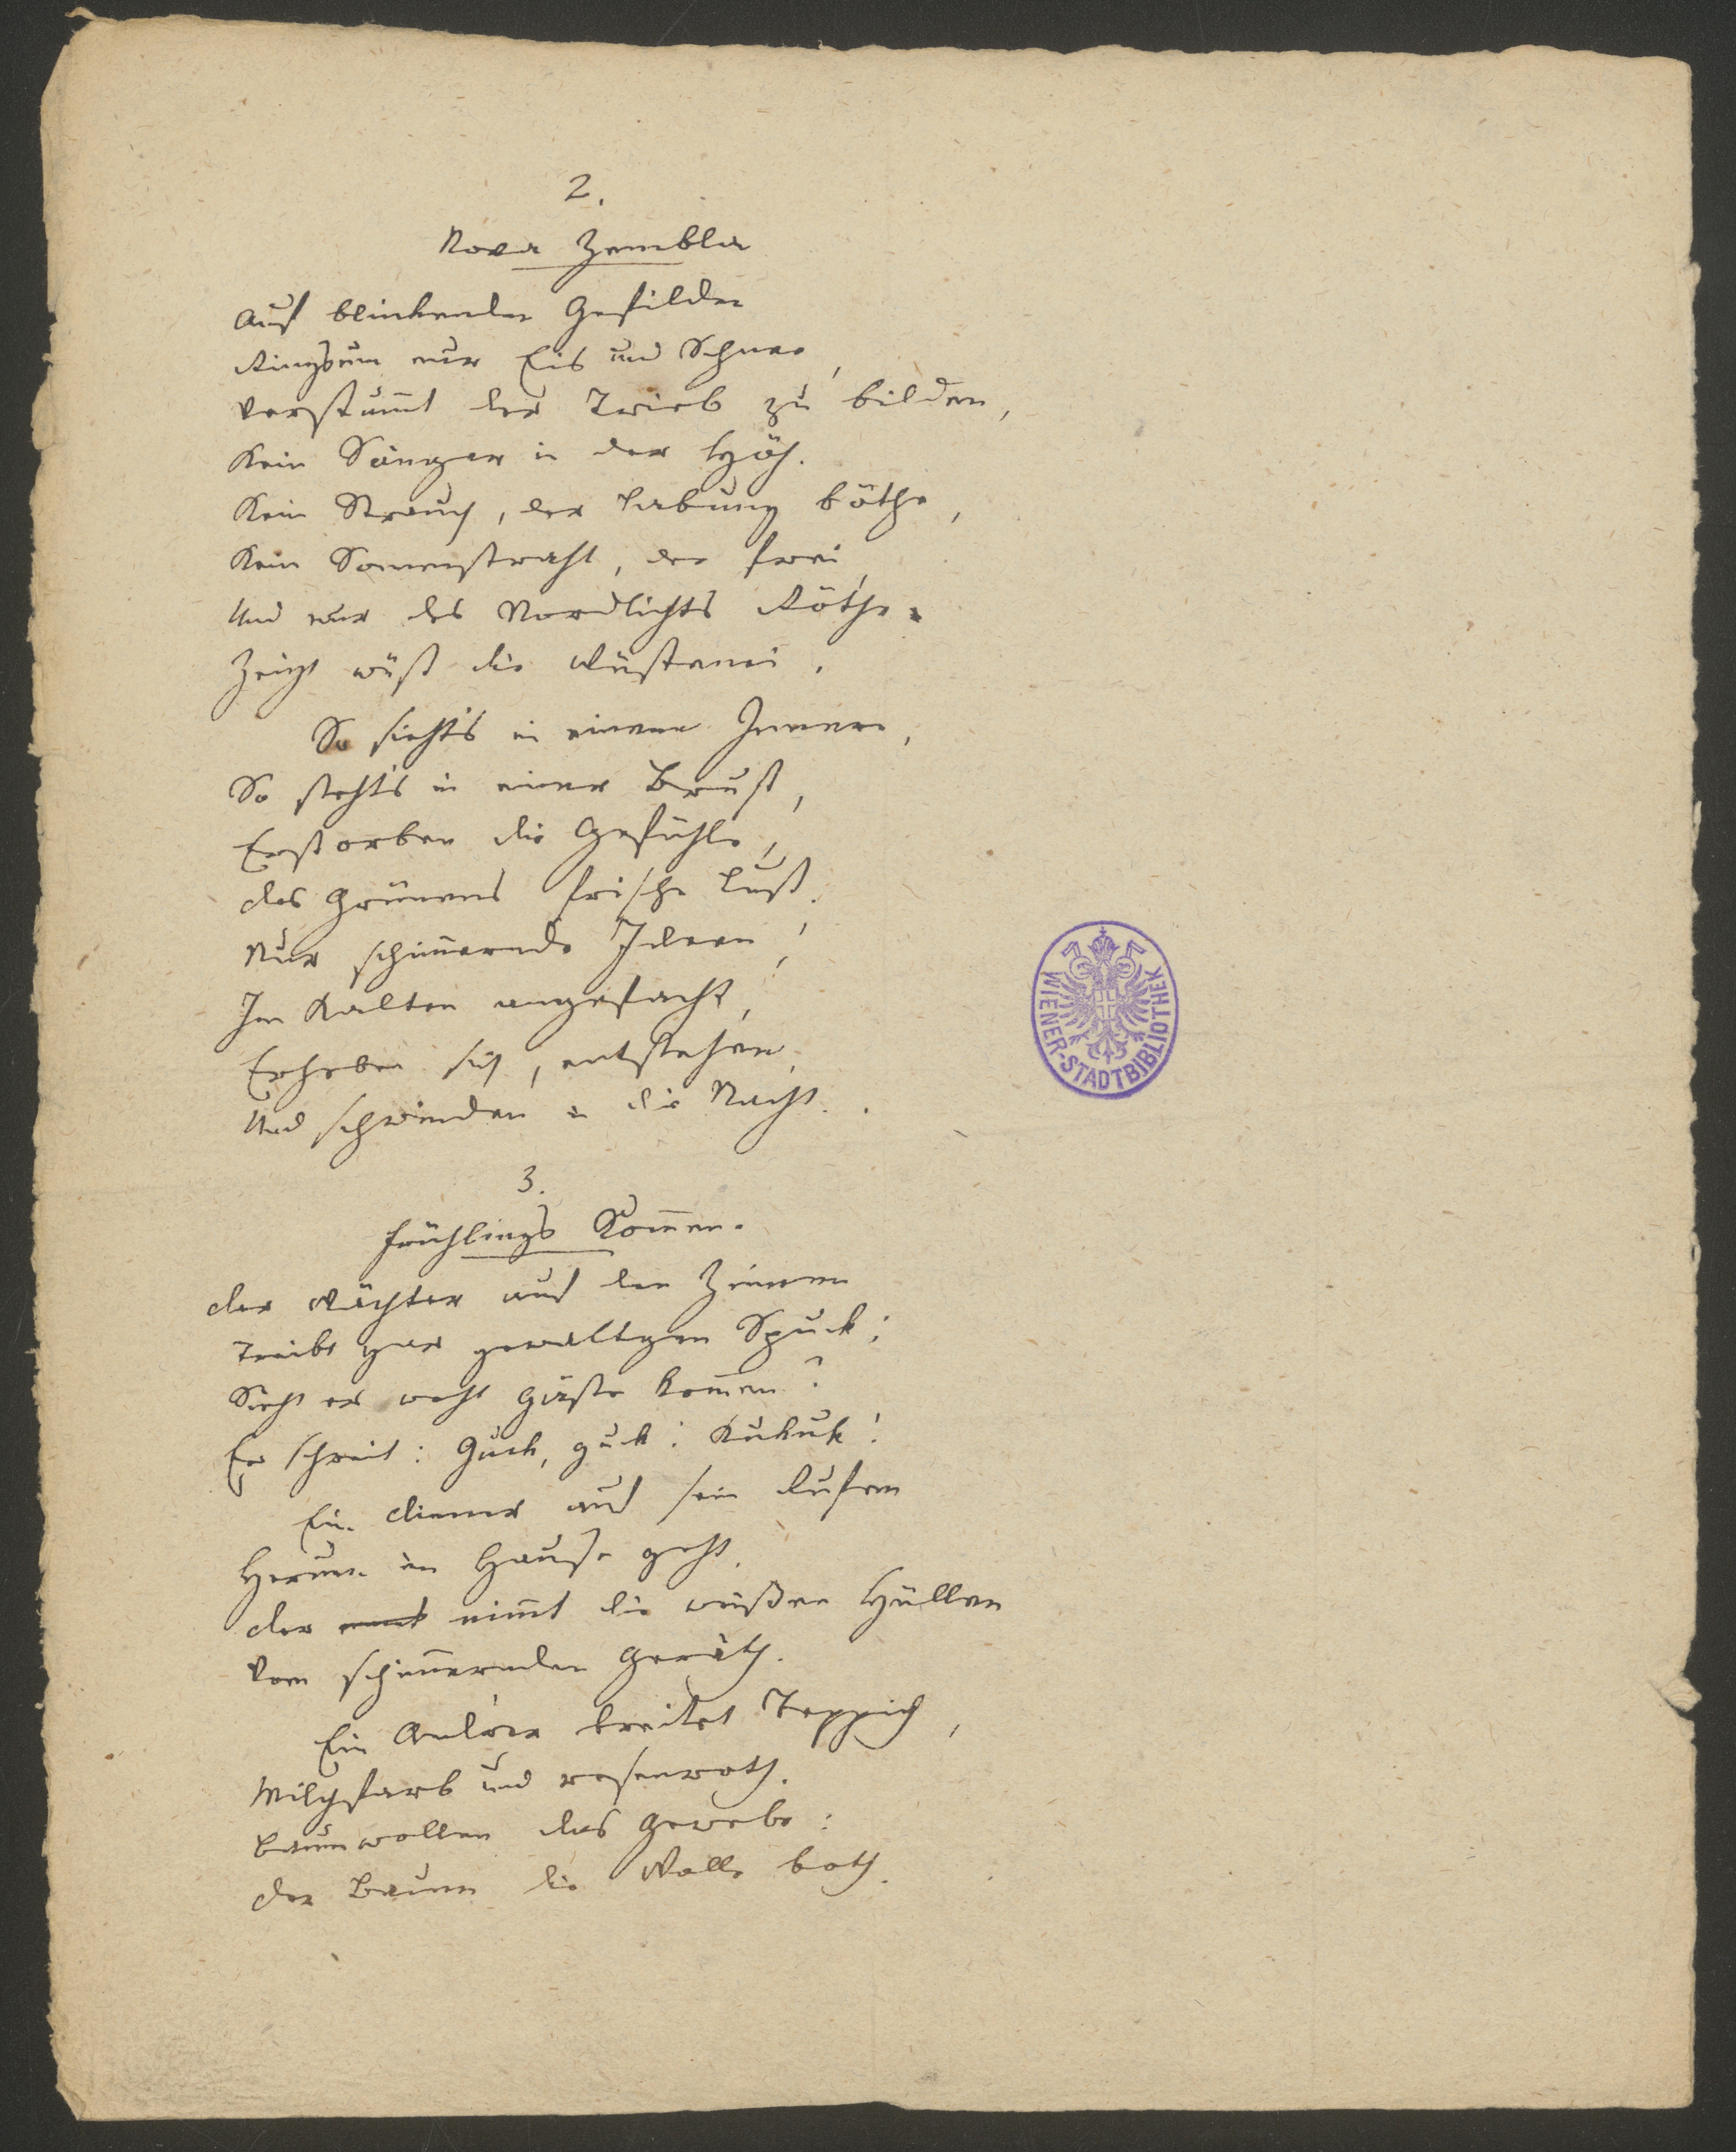 2.
Nova Zembla
Auf blinkenden Gefilden
Ringsum nur Eis und Schnee,
Verstum̄t der Trieb zu bilden,
Kein Sänger in der Höh.
Kein Strauch, der Labung böthe,
Kein Sonnenstrahl, der frei,
Und nur des Nordlichts Röthe
Zeigt wüst die Wüstenei.
So sieht's in einem Innern,
So steht's in einer Brust,
Erstorben die Gefühle,
Des Grünens frische Lust.
Nur schim̄ernde Ideen,
Im Kalten angefacht,
Erheben sich, entstehen,
Und schwinden in die Nacht.
3.
Frühlings Kom̄en.
Der Wächter auf den Zinnen
Treibt gar gewaltgen Spuck;
Sieht er wohl Gäste kom̄en?
Er schreit: Guck, guck! Kukuk!
Ein Diener auf sein Rufen
Herum im Hause geht.
Der nim̄t die weißen Hüllen
Vom schim̄ernden Geräth.
Ein Andrer breitet Teppich,
Milchfarb und rosenroth.
Baumwollen das Gewebe:
Der Baum die Wolle both.
WIENER-STADTBIBLIOTHEK